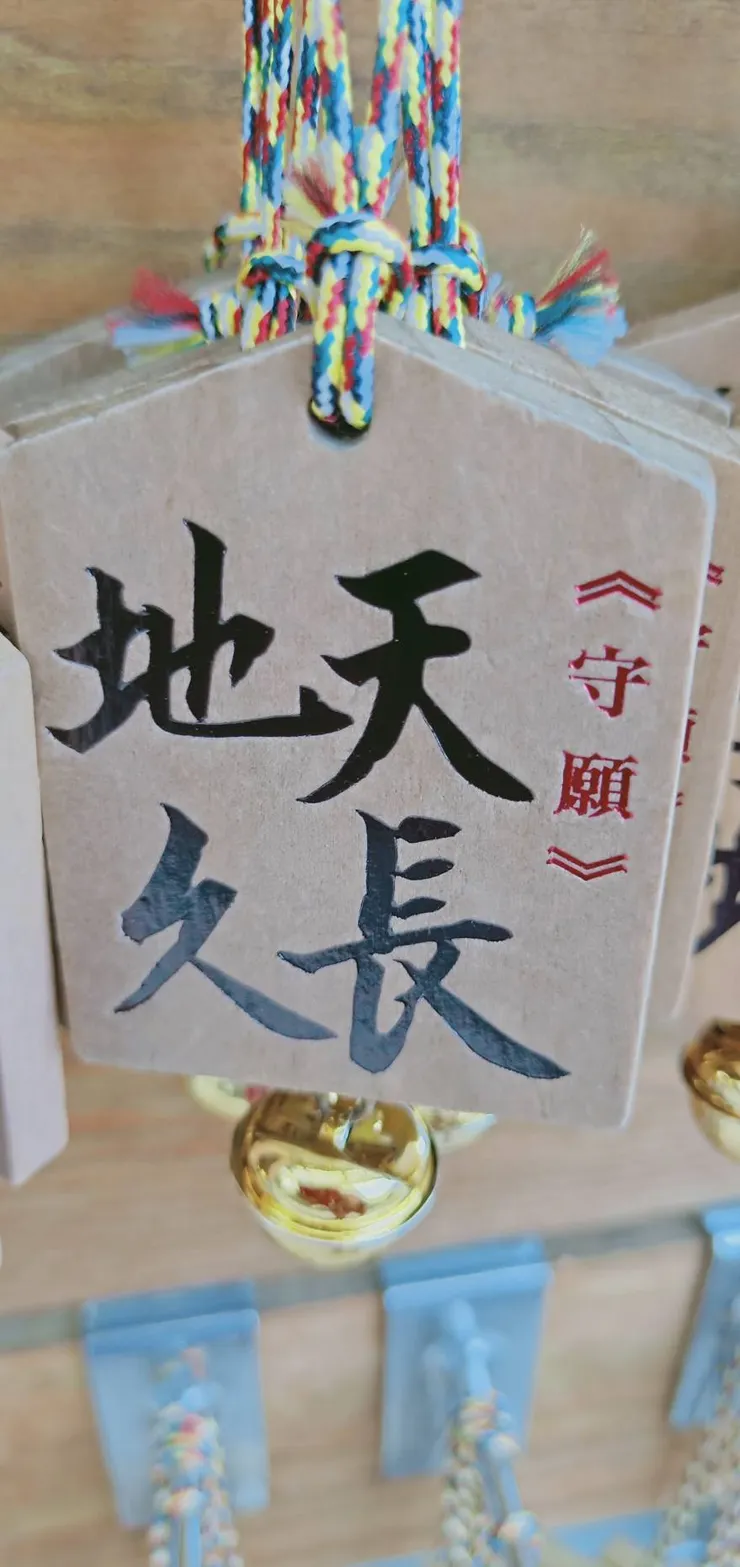 《守願》
天長
地久